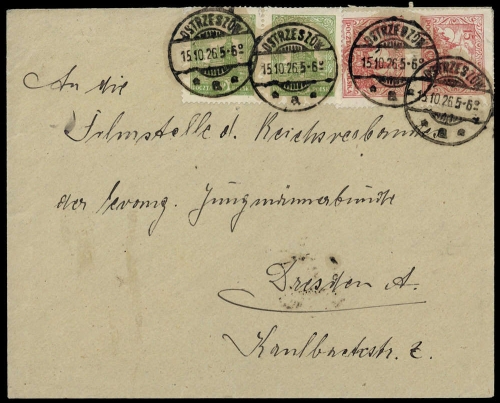 OSTRZESZÓW
15.10.26.5-6
a
OSTRZESZÓW
15.10.26.5-6
a
OSTRZESZÓW
15.10.26.5-6
a
OSTRZESZÓW
15.10.26.5-6
a
An die
Filmstelle d. Reichsverbandes
der evang. Jungmännerbünde
Dresden A.
Kaulbachstr. 7.